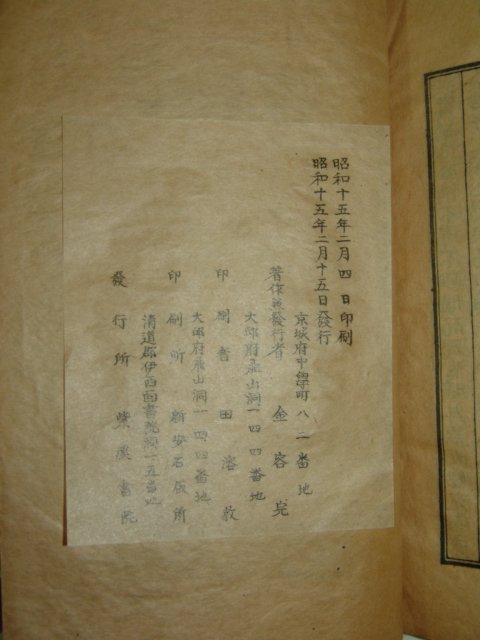 昭和十五年二月四日印刷
昭和十五年二月十五日發行
京城府中學町八二番地
著作兼發行者 金容完
大邱府南山洞一四四番地
印刷者 田溶敎
大邱府南山洞一四四番地
印刷所 新安石版所
淸道郡伊西面書院洞一五番地
發行所 紫溪書院